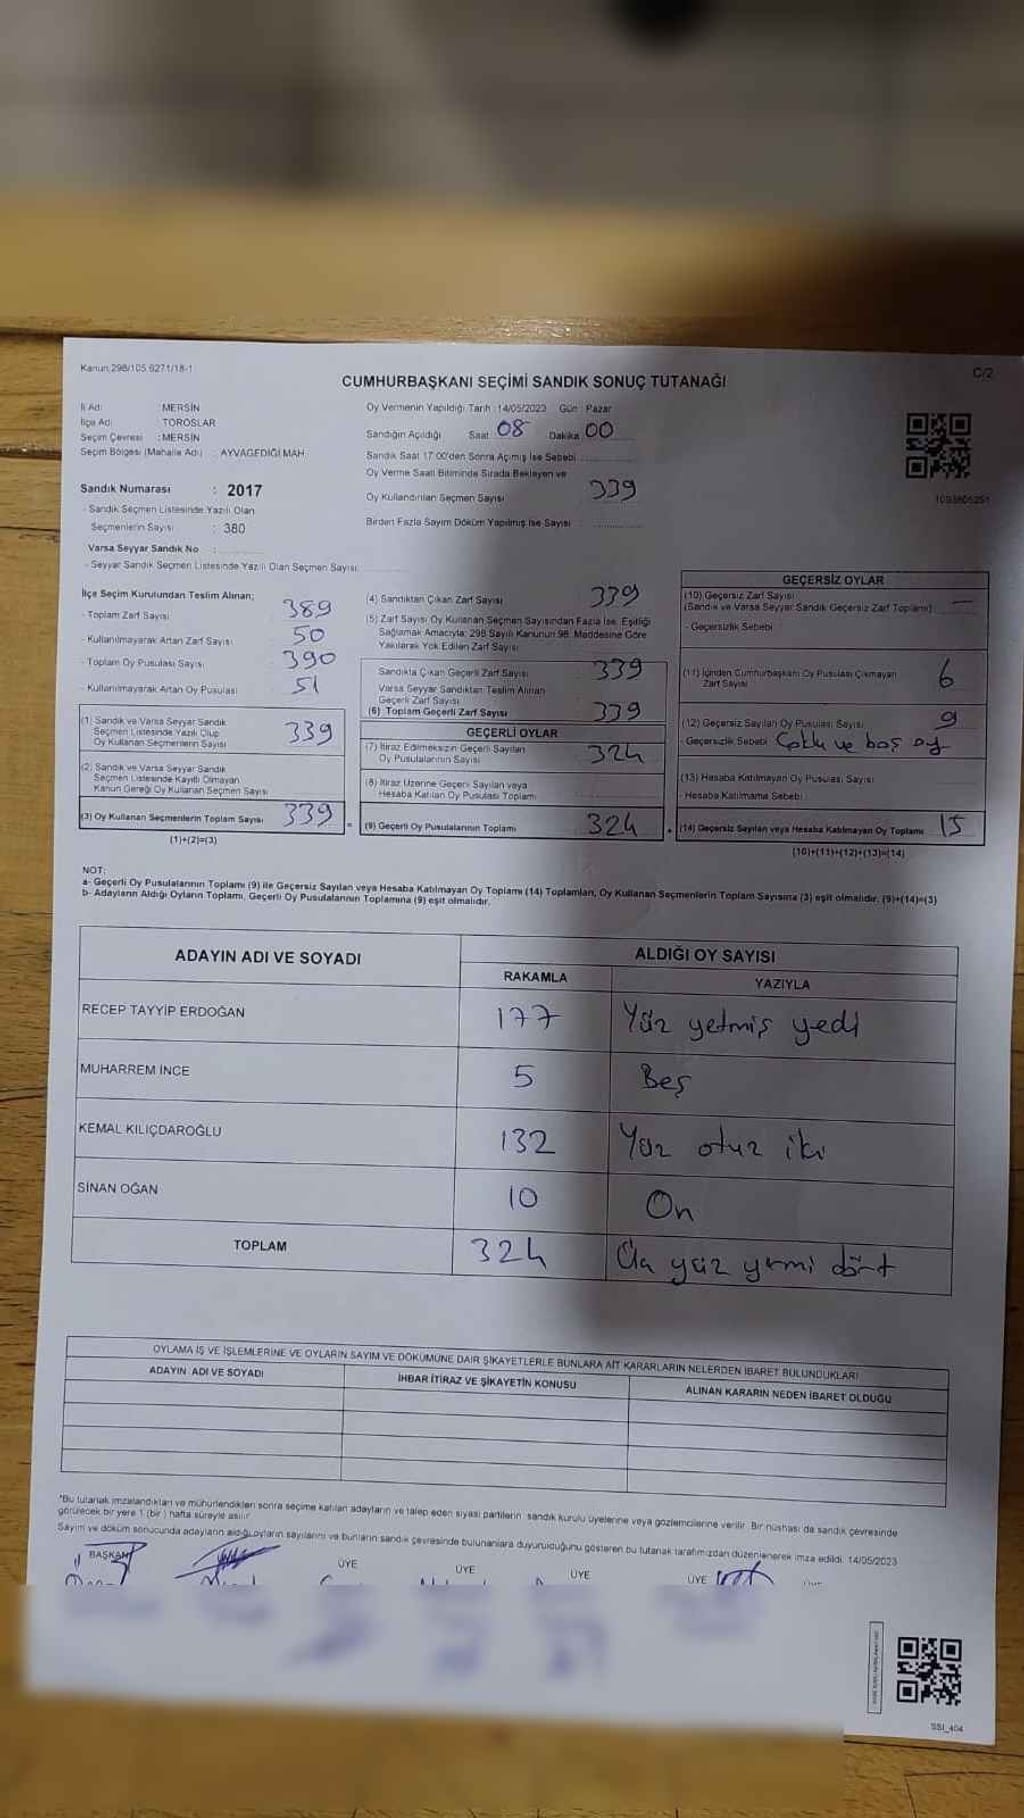 Kanun 298/105 6271/18-1
C/2
CUMHURBAŞKANI SEÇİMİ SANDIK SONUÇ TUTANAĞI
İl Adı : MERSİN
İlçe Adı : TOROSLAR
Seçim Çevresi : MERSİN
Seçim Bölgesi (Mahalle Adı) : AYVAGEDİĞİ MAH.
Sandık Numarası : 2017
- Sandık Seçmen Listesinde Yazılı Olan
Seçmenlerin Sayısı : 380
Varsa Seyyar Sandık No :
- Seyyar Sandık Seçmen Listesinde Yazılı Olan Seçmen Sayısı:
Oy Vermenin Yapıldığı Tarih : 14/05/2023 Gün : Pazar
Sandığın Açıldığı Saat 08 Dakika 00
Sandık Saat 17:00'den Sonra Açımış İse Sebebi
Oy Verme Saati Bitiminde Sırada Bekleyen ve
Oy Kullandırılan Seçmen Sayısı 339
Birden Fazla Sayım Döküm Yapılmış İse Sayısı
İlçe Seçim Kurulundan Teslim Alınan;
- Toplam Zarf Sayısı 389
- Kullanılmayarak Artan Zarf Sayısı 50
- Toplam Oy Pusulası Sayısı 390
- Kullanılmayarak Artan Oy Pusulası 51
(1) Sandık ve Varsa Seyyar Sandık
Seçmen Listesinde Yazılı Olup
Oy Kullanan Seçmenlerin Sayısı 339
(2) Sandık ve Varsa Seyyar Sandık
Seçmen Listesinde Kayıtlı Olmayan
Kanun Gereği Oy Kullanan Seçmen Sayısı
(3) Oy Kullanan Seçmenlerin Toplam Sayısı 339
(1)+(2)=(3)
(4) Sandıktan Çıkan Zarf Sayısı 339
(5) Zarf Sayısı Oy Kullanan Seçmen Sayısından Fazla İse, Eşitliği
Sağlamak Amacıyla; 298 Sayılı Kanunun 98. Maddesine Göre
Yakılarak Yok Edilen Zarf Sayısı
Sandıkta Çıkan Geçerli Zarf Sayısı 339
Varsa Seyyar Sandıktan Teslim Alınan
Geçerli Zarf Sayısı
(6) Toplam Geçerli Zarf Sayısı 339
GEÇERLİ OYLAR
(7) İtiraz Edilmeksizin Geçerli Sayılan
Oy Pusulalarının Sayısı 324
(8) İtiraz Üzerine Geçerli Sayılan veya
Hesaba Katılan Oy Pusulası Toplamı
(9) Geçerli Oy Pusulalarının Toplamı 324
GEÇERSİZ OYLAR
(10) Geçersiz Zarf Sayısı
(Sandık ve Varsa Seyyar Sandık Geçersiz Zarf Toplamı) —
- Geçersizlik Sebebi
(11) İçinden Cumhurbaşkanı Oy Pusulası Çıkmayan
Zarf Sayısı 6
(12) Geçersiz Sayılan Oy Pusulası Sayısı 9
- Geçersizlik Sebebi Çoklu ve boş oy
(13) Hesaba Katılmayan Oy Pusulası Sayısı
- Hesaba Katılmama Sebebi
(14) Geçersiz Sayılan veya Hesaba Katılmayan Oy Toplamı 15
(10)+(11)+(12)+(13)=(14)
NOT:
a- Geçerli Oy Pusulalarının Toplamı (9) ile Geçersiz Sayılan veya Hesaba Katılmayan Oy Toplamı (14) Toplamları, Oy Kullanan Seçmenlerin Toplam Sayısına (3) eşit olmalıdır. (9)+(14)=(3)
b- Adayların Aldığı Oyların Toplamı, Geçerli Oy Pusulalarının Toplamına (9) eşit olmalıdır.
ADAYIN ADI VE SOYADI
ALDIĞI OY SAYISI
RAKAMLA YAZIYLA
RECEP TAYYİP ERDOĞAN 177 Yüz yetmiş yedi
MUHARREM İNCE 5 Beş
KEMAL KILIÇDAROĞLU 132 Yüz otuz iki
SİNAN OĞAN 10 On
TOPLAM 324 Üç yüz yirmi dört
OYLAMA İŞ VE İŞLEMLERİNE VE OYLARIN SAYIM VE DÖKÜMÜNE DAİR ŞİKAYETLERLE BUNLARA AİT KARARLARIN NELERDEN İBARET BULUNDUKLARI
ADAYIN ADI VE SOYADI İHBAR İTİRAZ VE ŞİKAYETİN KONUSU ALINAN KARARIN NEDEN İBARET OLDUĞU
*Bu tutanak imzalandıktan ve mühürlendikten sonra seçime katılan adayların ve talep eden siyasi partilerin sandık kurulu üyelerine veya gözlemcilerine verilir. Bir nüshası da sandık çevresinde
görülecek bir yere 1 (bir) hafta süreyle asılır.
Sayım ve döküm sonucunda adayların aldığı oyların sayılarını ve bunların sandık çevresinde bulunanlara duyurulduğunu gösteren bu tutanak tarafımızdan düzenlenerek imza edildi. 14/05/2023
BAŞKAN ÜYE ÜYE ÜYE ÜYE
SSI_404